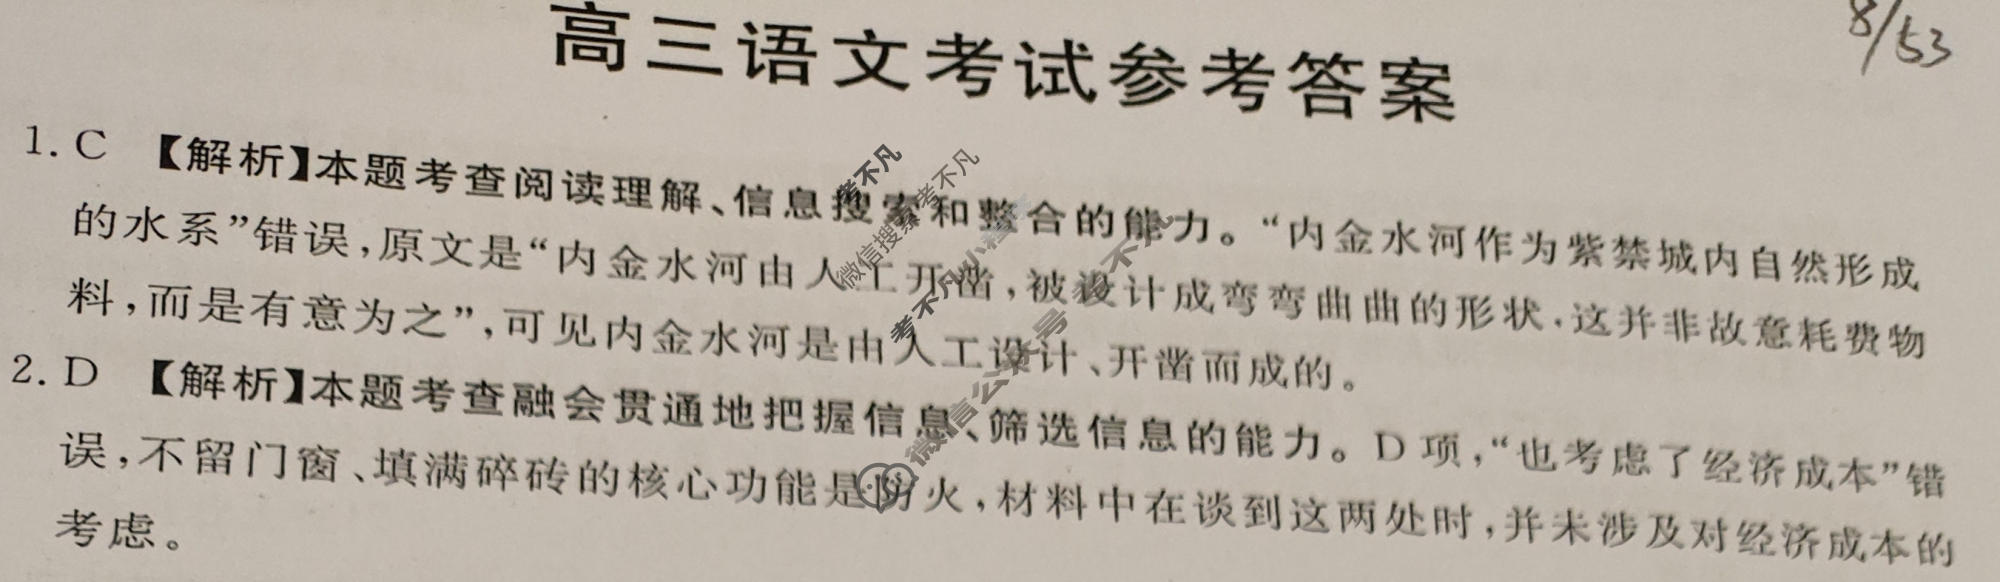 高三语文考试参考答案
8/53
1. C 【解析】本题考查阅读理解、信息搜索和整合的能力。“内金水河作为紫禁城内自然形成
的水系”错误,原文是“内金水河由人工开凿,被设计成弯弯曲曲的形状,这并非故意耗费物
料,而是有意为之”,可见内金水河是由人工设计、开凿而成的。
2. D 【解析】本题考查融会贯通地把握信息、筛选信息的能力。D 项,“也考虑了经济成本”错
误,不留门窗、填满碎砖的核心功能是防火,材料中在谈到这两处时,并未涉及对经济成本的
考虑。
考不凡
微信搜索考不凡
考不凡小程序
微信公众号 考不凡